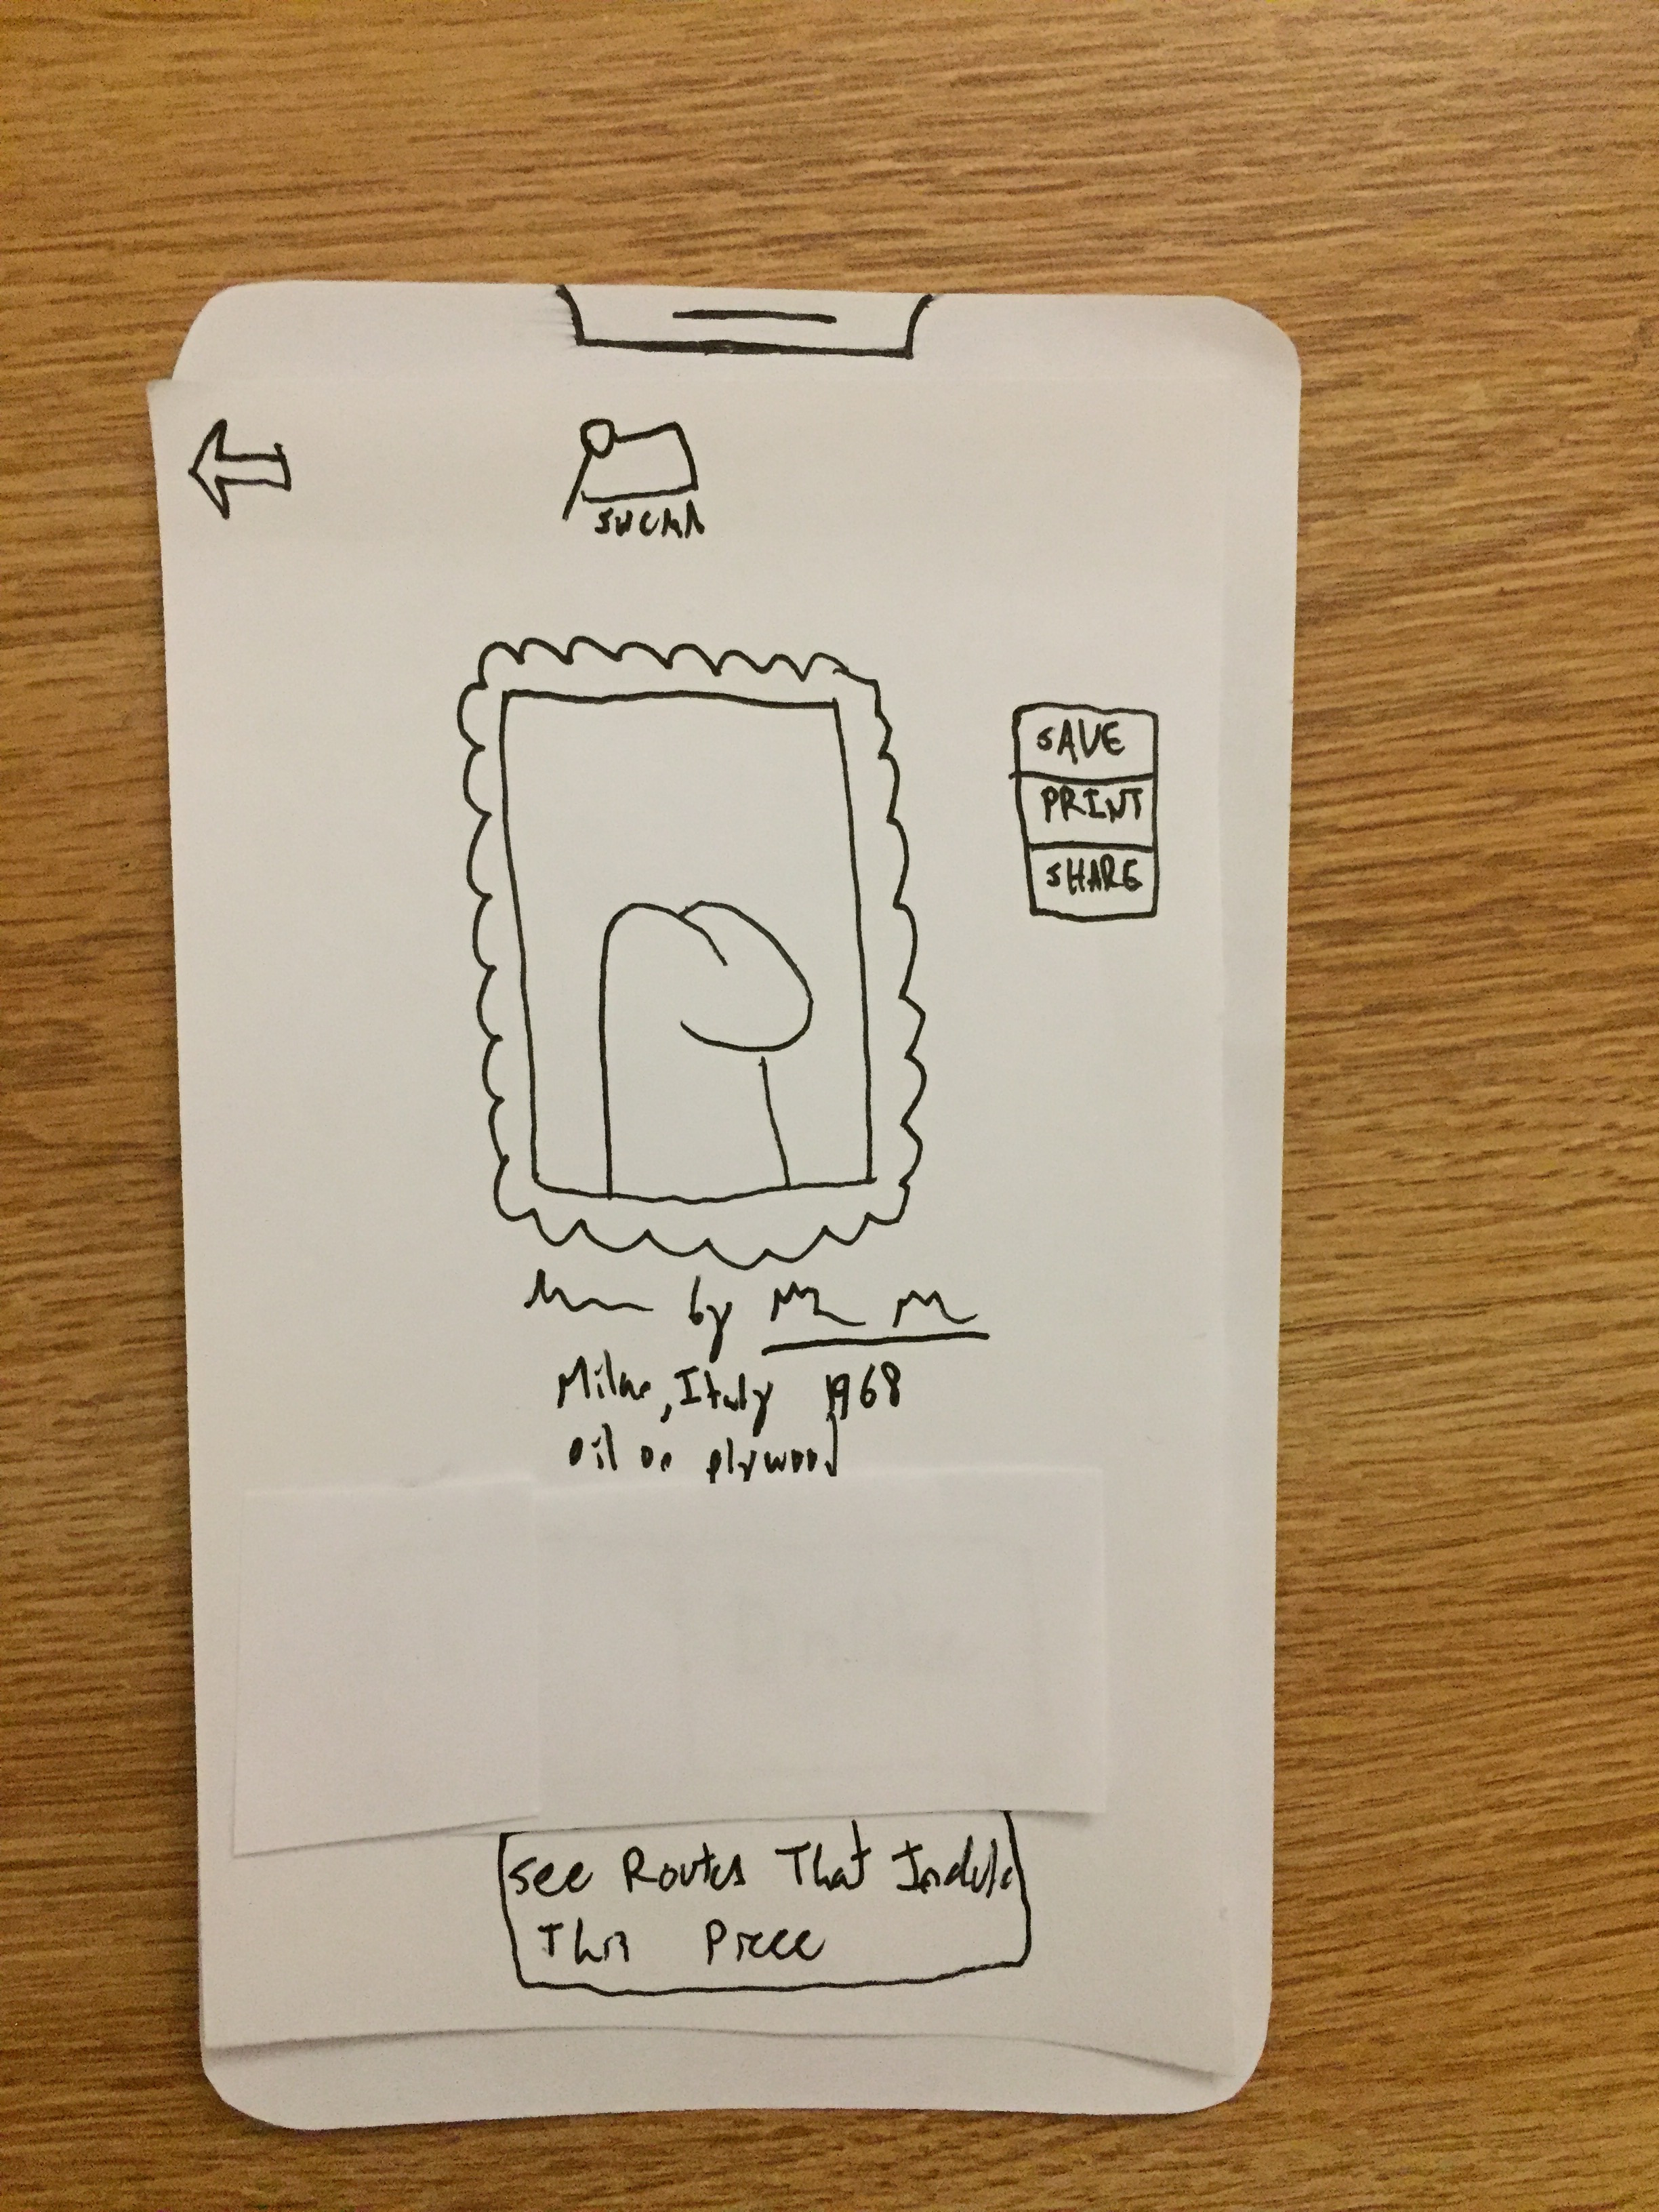 SAVE
PRINT
SHARE
by
Italy 1968
oil on plywood
See Routes That Include
This Piece